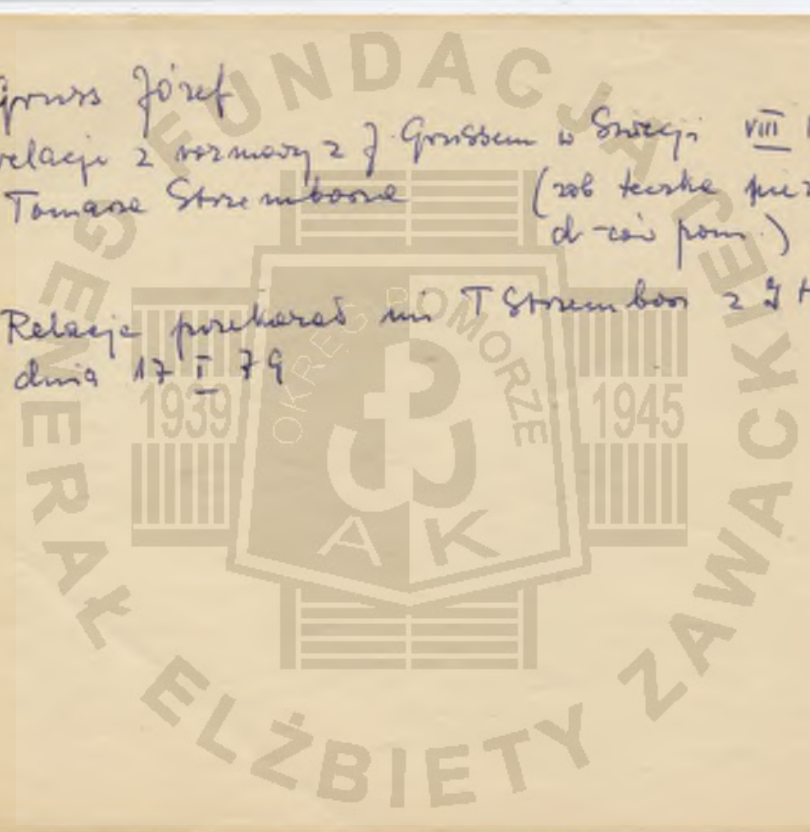 Gruss Józef
relacje z rozmowy z J. Grussem w Szwecji VIII
Tomasza Strzembosza (zob teczka
d-ców pom.)
Relację przekazał mi T Strzembosz z
dnia 17 I 79
FUNDACJA GENERAŁ ELŻBIETY ZAWACKIEJ
OKRĘG POMORZE
1939 1945
AK